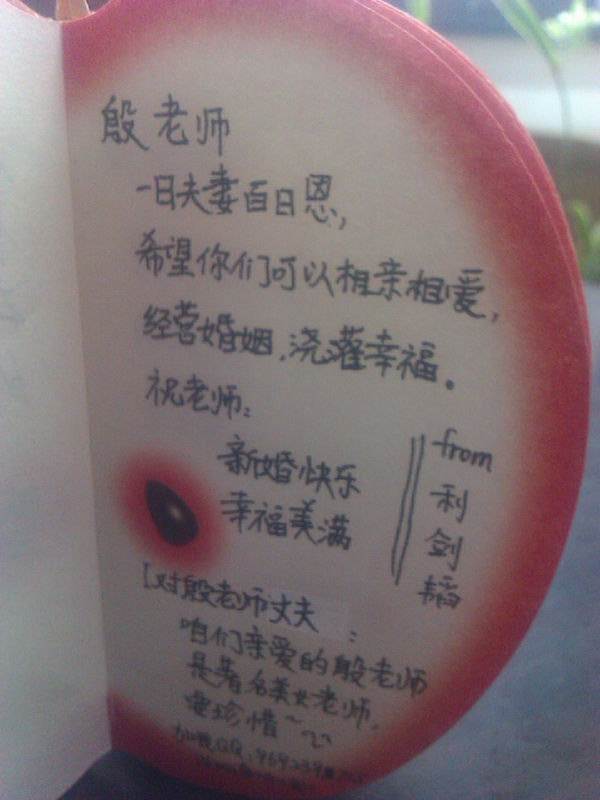 殷老师
一日夫妻百日恩,
希望你们可以相亲相爱,
经营婚姻,浇灌幸福。
祝老师:
新婚快乐
幸福美满
from
利
剑
韬
[对殷老师丈夫:
咱们亲爱的殷老师
是著名美女老师,
要珍惜~
加我QQ: